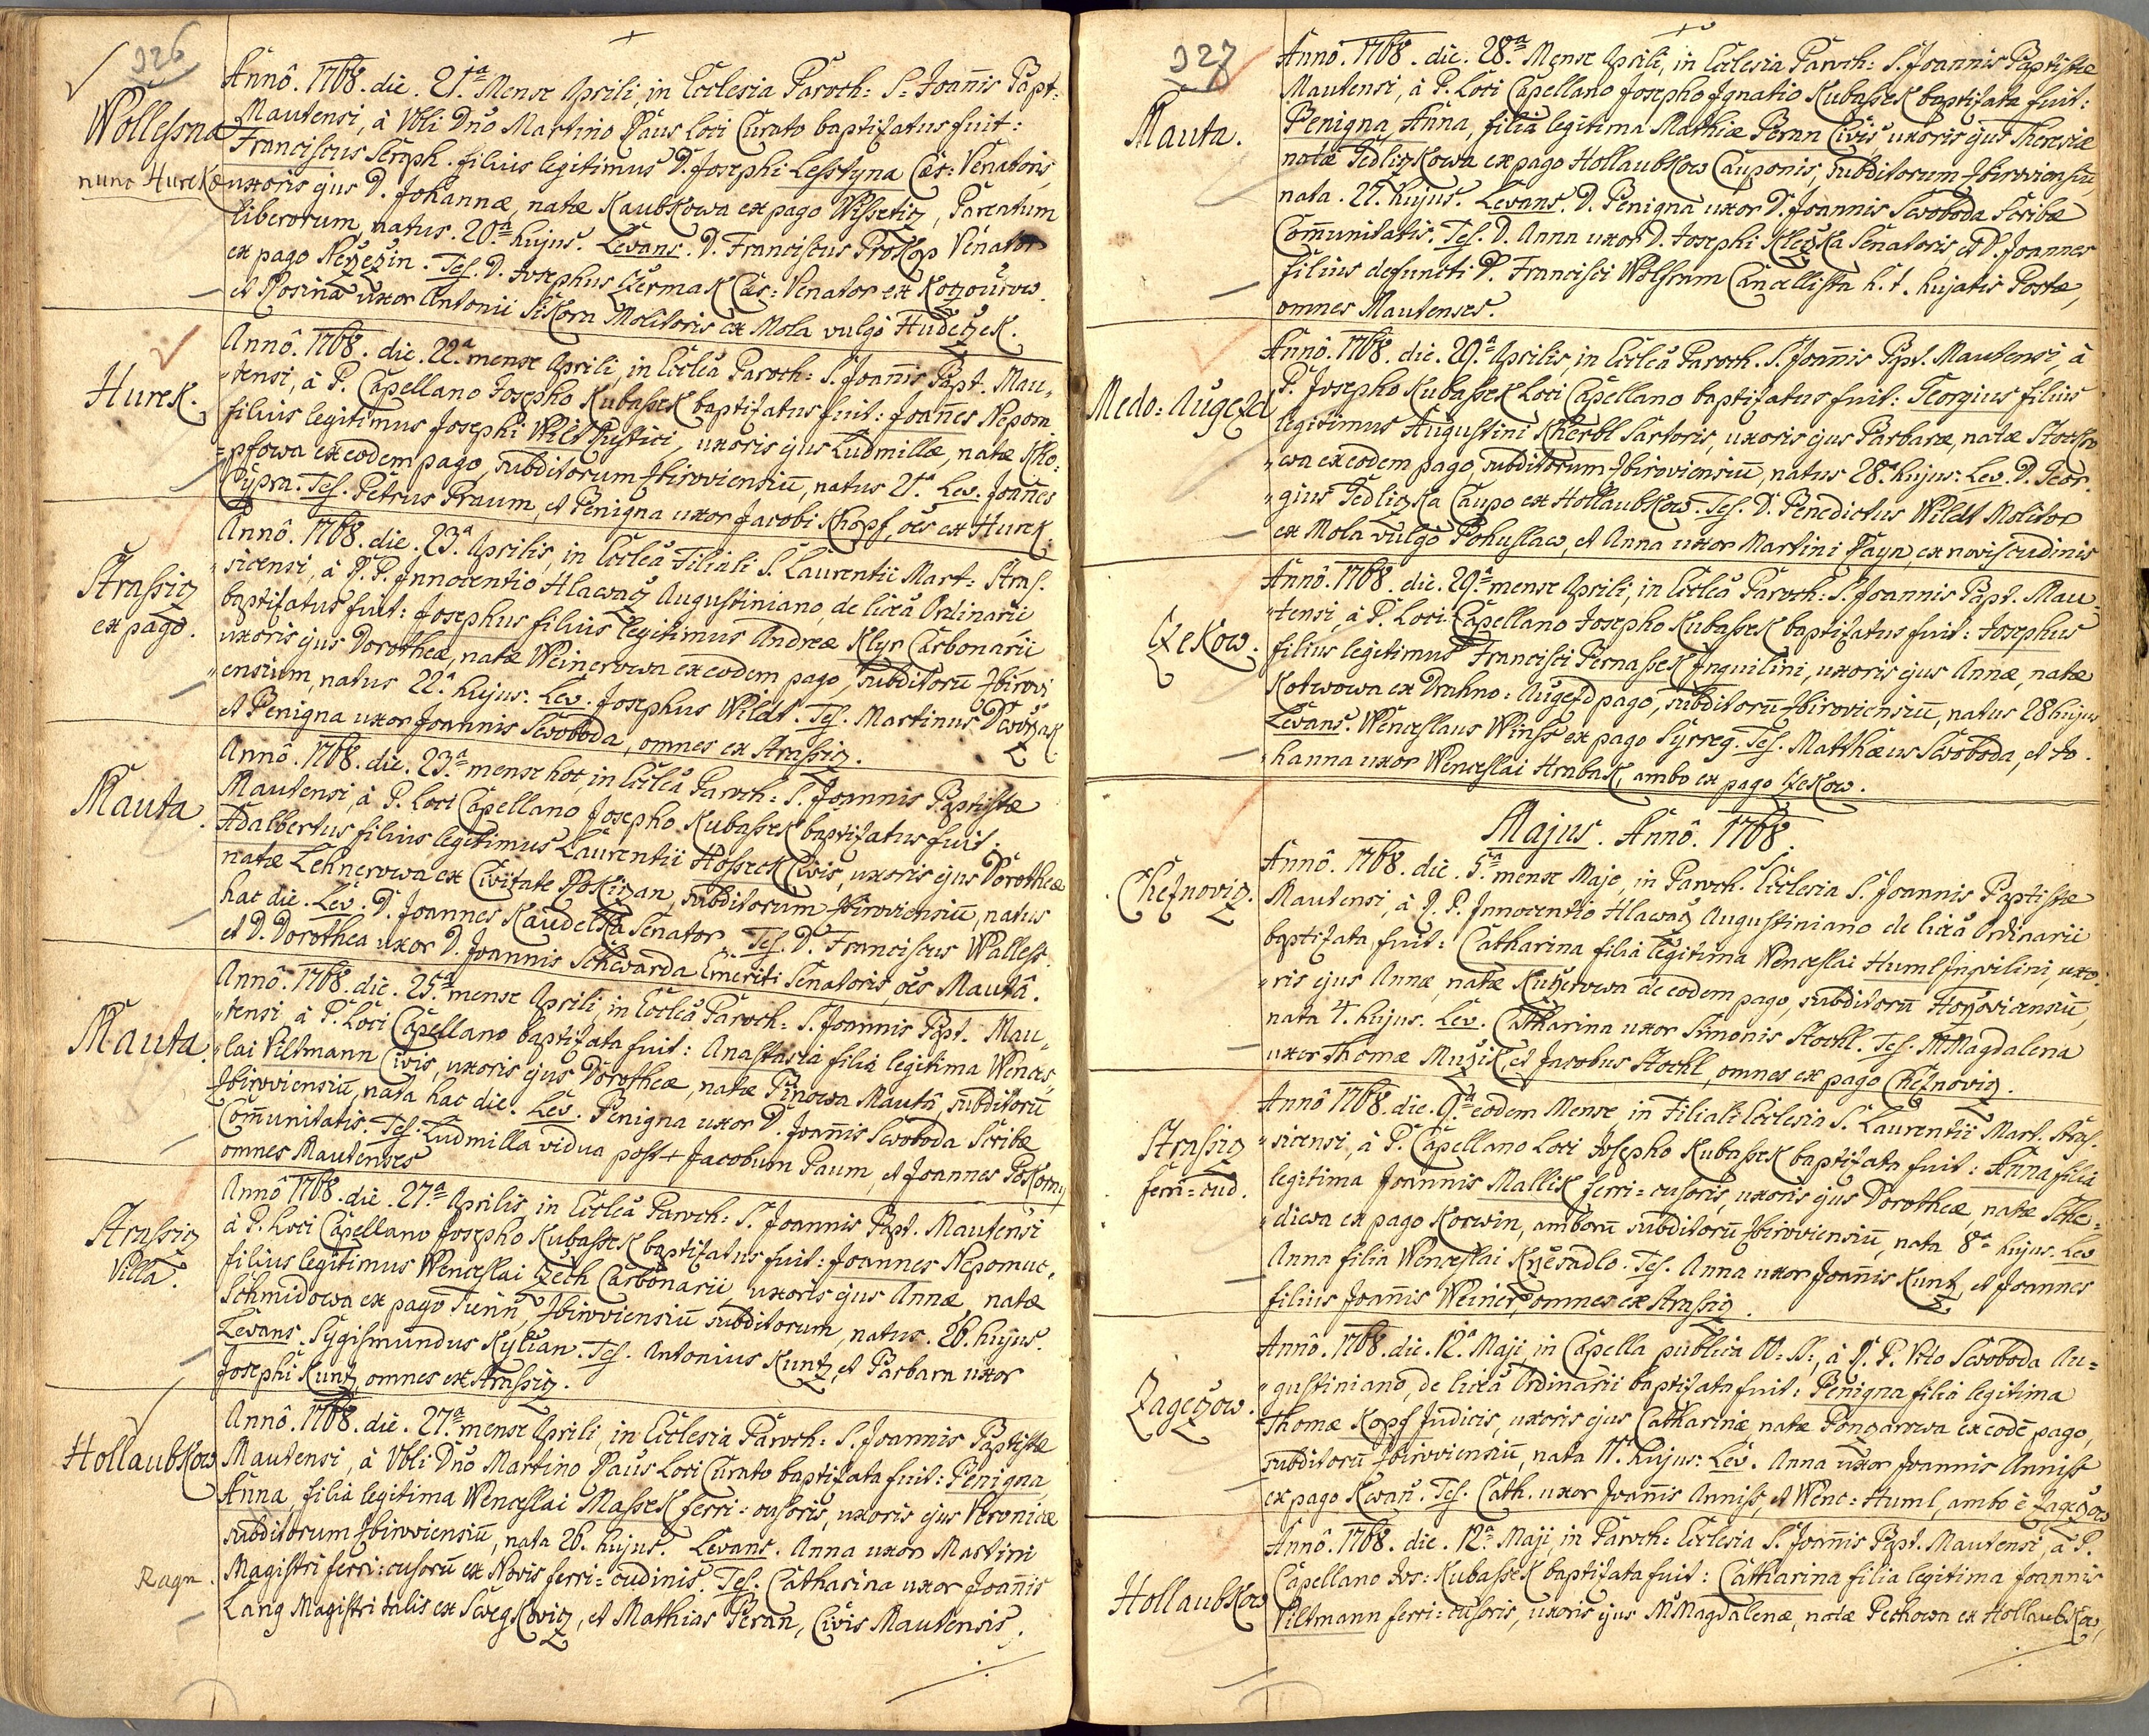 326
Wollessna
nunc Hurek
Annô. 1768. die. 21ª Mense Aprili, in Ecclesia Paroch: S. Joannis Bapt:
Mautensi, à Vbli Dño Martino Paus Loci Curato baptizatus fuit:
Franciscus Seraph. filius legitimus D. Josephi Lesstyna Cæs: Venatoris,
uxoris ejus D. Johannæ, natæ Kaubkowa ex pago Wissetiz, Parentum
liberorum, natus. 20ª hujus. Levans. D. Franciscus Prokop Venator
ex pago Nezezin. Tes. D. Josephus Czermak Cæs: Venator ex Kozourow.
et Rosina uxor Antonii Sikora Molitoris ex Mola vulgò Hudeczek.
Hurek.
Annô. 1768. die. 22ª mense Aprili, in Ecclâ Paroch: S. Joannis Bapt. Mau„
„tensi, à P. Capellano Josepho Kubassek baptizatus fuit: Joañes Nepom:
filius legitimus Josephi Wild Rustici, uxoris ejus Ludmillæ, natæ Kho:
=pfowa ex eodem pago, subditorum Zbiroviensiũ, natus 21ª Lev. Joañes
Cypra. Tes. Petrus Praum, et Benigna uxor Jacobi Khopf, oẽs ex Hurek.
Strassiz
ex pago.
Annô. 1768. die. 23ª Aprilis, in Ecclâ Filiali S. Laurentii Mart: Stras.
„sicensi, à R. P. Innocentio Hlawacz Augustiniano, de licã Ordinarii
baptizatus fuit: Josephus filius legitimus Andreæ Klyr Carbonarii
uxoris ejus Dorotheæ, natæ Weinerowa ex eodem pago, subditorũ Zbirovi
„ensium, natus 22ª hujus. Lev. Josephus Wildt. Tes. Martinus Dworzak
et Benigna uxor Joannis Swoboda, omnes ex Strassiz.
Mauta.
Annô. 1768. die. 23ª mense hoc, in Ecclâ Paroch: S. Joannis Baptistæ
Mautensi, à P. Loci Capellano Josepho Kubassek baptizatus fuit.
Adalbertus filius legitimus Laurentii Hossek Civis, uxoris ejus Dorotheæ
natæ Lehnerowa ex Civitate Rokizan, subditorum Zbiroviensiũ, natus
hac die. Lev. D. Joannes Kaudelka Senator. Tes. D. Franciscus Walless.
et D. Dorothea uxor D. Joannis Schwarda Emeriti Senatoris, oẽs Mautâ.
Mauta.
Annô. 1768. die. 25ª mense Aprili, in Ecclâ Paroch: S. Joannis Bpt. Mau„
„tensi à P. Loci Capellano baptizata fuit: Anastasia filia legitima Wences„
„lai Viltmann Civis, uxoris ejus Dorotheæ, natæ Pinowa Mautâ, subditorũ
Zbiroviensiũ, nata hac die. Lev. Benigna uxor D. Joañis Swoboda Scribæ
Com̃unitatis. Tes. Ludmilla vidua post + Jacobum Paum, et Joannes Pokorny
omnes Mautenses
Strassiz
Villa.
Annô 1768. die. 27ª Aprilis, in Ecclâ Paroch: S. Joannis Bpt. Mautensi
à P. Loci Capellano Josepho Kubassek baptizatus fuit: Joannes Nepomuc.
filius legitimus Wenceslai Czech Carbonarii, uxoris ejus Annæ, natæ
Schmidowa ex pago Tienñ, Zbiroviensiũ subditorum, natus. 26. hujus.
Levans. Sygismundus Kylian. Tes. Antonius Kuntz, et Barbara uxor
Josephi Kuntz, omnes ex Strassiz.
Hollaubkow
Ragn.
Annô. 1768. die. 27ª mense Aprili, in Ecclesia Paroch: S. Joannis Baptistæ
Mautensi, à Vbli Dño Martino Paus Loci Curato baptizata fuit: Benigna
Anna, filia legitima Wenceslai Massek ferri=cusoris, uxoris ejus Veronicæ
subditorum Zbiroviensiũ, nata 26. hujus. Levans. Anna uxor Martini
Magistri ferri=cusorũ ex Novis ferri=cudinis. Tes. Catharina uxor Joañis
Lang Magistri talis ex Swegkowiz, et Mathias Beran, Civis Mautensis.
327
Mauta.
Annô. 1768. die. 28ª Mense Aprili, in Ecclesia Paroch: S. Joannis Baptistæ
Mautensi, à P. Loci Capellano Josepho Ignatio Kubassek baptizata fuit:
Benigna, Anna, filia legitima Mathiæ Beran Civis, uxoris ejus Theresiæ
natæ Sedliczkowa ex pago Hollaubkow Cauponis, subditorum Zbiroviensiũ
nata. 27. hujus. Levans. D. Benigna uxor D. Joannis Swoboda Scribæ
Com̃unitatis. Tes. D. Anna uxor D. Josephi Kleczka Senatoris, et D. Joannes
filius defuncti D. Francisci Wolfram Cancellista h. t. hujatis Postæ,
omnes Mautenses.
Medo: Augezd
Annô. 1768. die. 29ª Aprilis, in Ecclâ Paroch. S. Joañis Bpt. Mautensi, à
P. Josepho Kubassek Loci Capellano baptizatus fuit: Georgius filius
legitimus Augustini Kherbl Sartoris, uxoris ejus Barbaræ, natæ
„wa ex eodem pago, subditorum Zbiroviensiũ, natus 28ª hujus: Lev. D. Geor.
„gius Sedliczka Caupo ex Hollaubkow. Tes. D. Benedictus Wildt Molitor
ex Mola vulgò Bohuslaw, et Anna uxor Martini Payn, ex novis cudinis
Czekow.
Annô. 1768. die. 29ª mense Aprili, in Ecclâ Paroch: S. Joannis Bapt. Mau„
„tensi, à P. Loci Capellano Josepho Kubassek baptizatus fuit: Josephus
filius legitimus Francisci Bernassek Inquilini, uxoris ejus Annæ, natæ
Kotwowa ex Drahno: Augezd pago, subditorũ Zbiroviensiũ, natus 28 hujus
Levans. Wenceslaus Winss ex pago Syrreg. Tes. Matthæus Swoboda, et Jo.
„hanna uxor Wenceslai Hrabak, ambo ex pago Czekow.
Majus. Annô. 1768.
Cheznoviz.
Annô. 1768. die. 5ª mense Majo, in Paroch. Ecclesia S. Joannis Baptistæ
Mautensi, à R. P. Innocentio Hlawacz Augustiniano de licã Ordinarii
baptizata fuit: Catharina filia legitima Wenceslai Huml Inquilini, uxo.
„ris ejus Annæ, natæ Kuczerowa de eodem pago, subditorũ Horzoviensiũ,
nata 4. hujus. Lev. Catharina uxor Simonis Stockl. Tes. M Magdalena
uxor Thomæ Muzik, et Jacobus Stockl, omnes ex pago Cheznoviz.
Strassiz
ferri=cud.
Annô 1768. die. 9ª eodem Mense in Filiali Ecclesia S. Laurentii Mart. Stras.
„sicensi, à P. Capellano Loci Josepho Kubassek baptizata fuit: Anna filia
legitima Joannis Mallik ferri=cusoris, uxoris ejus Dorotheæ, natæ Sche=
„diwa ex pago Kocwin, amborũ subditorũ Zbiroviensiũ, nata 8ª hujus. Lev
Anna filia Wenceslai Krzesadlo. Tes. Anna uxor Joañis Kuntz, et Joannes
filius Joañis Weiner, omnes ex Strassiz.
Zageczow.
Annô. 1768. die. 12ª Maji, in Capella publica OO: SS:, à R. P. Vito Swoboda Au=
„gustiniano, de licã Ordinarii baptizata fuit: Benigna filia legitima
Thomæ Kopf Judicis, uxoris ejus Catharinæ, natæ Pongarowa ex eodẽ pago,
subditorũ Zbiroviensiũ, nata 11. hujus: Lev. Anna uxor Joannis Anniss
ex pago Kwañ. Tes. Cath. uxor Joañis Anniss, et Wenc: Huml, ambo è Zageczow
Hollaubkow
Annô. 1768. die. 12ª Maji, in Paroch: Ecclesia S. Joañis Bpt. Mautensi, à P.
Capellano Jos: Kubassek baptizata fuit: Catharina filia legitima Joannis
Viltmann ferri=cusoris, uxoris ejus M Magdalenæ, natæ Pechowa ex Hollaubkow,